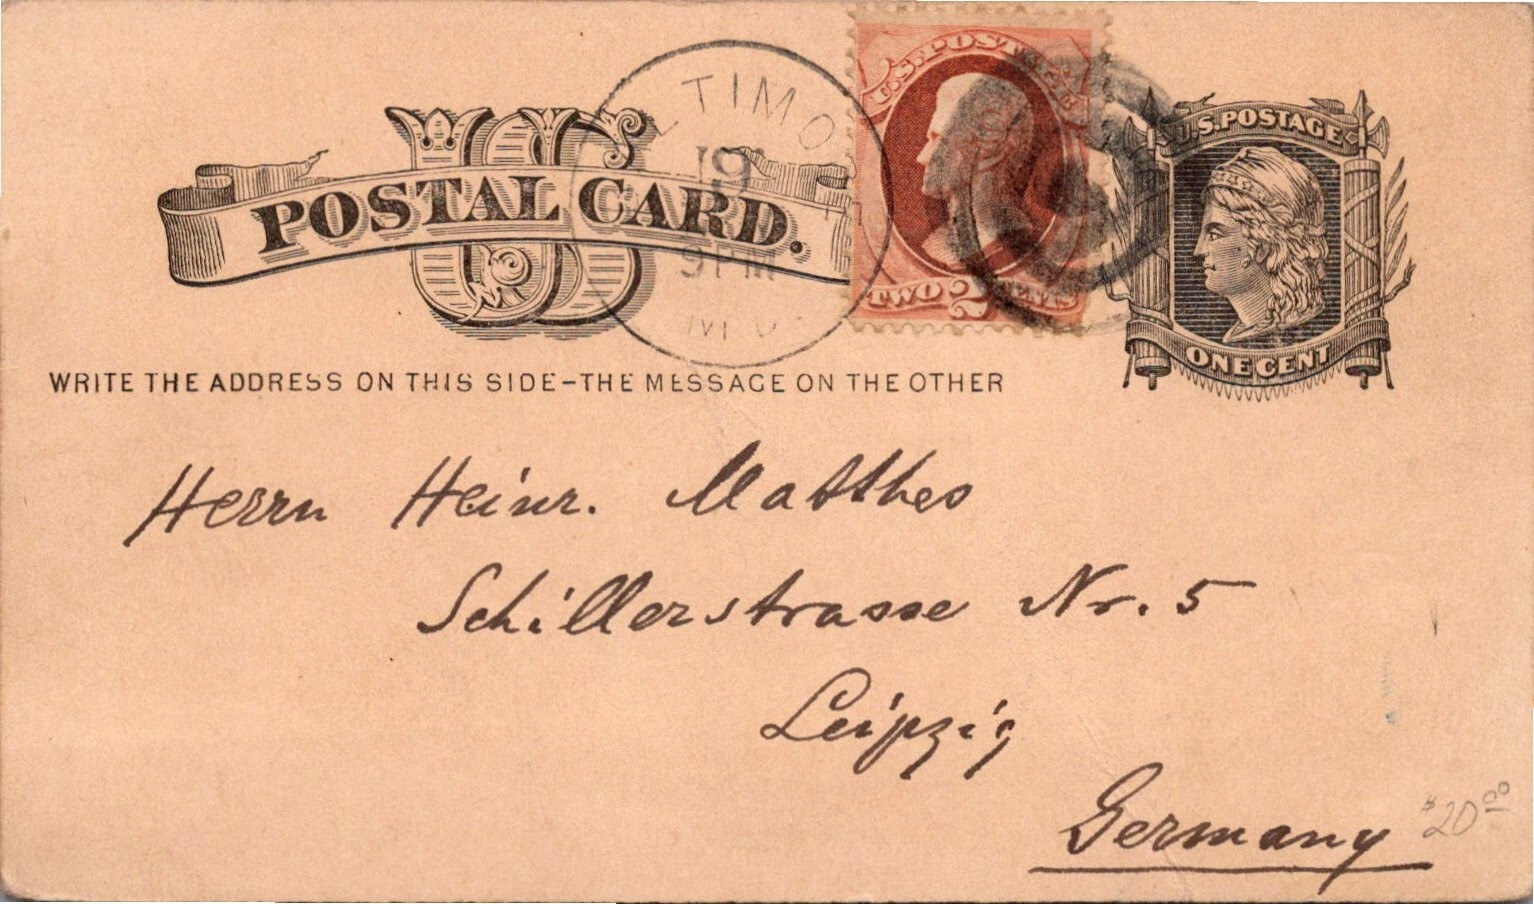 US
POSTAL CARD.
LTIMO
19
9PM
MD.
U.S. POSTAGE
TWO 2 CENTS
U.S. POSTAGE
ONE CENT
WRITE THE ADDRESS ON THIS SIDE-THE MESSAGE ON THE OTHER
Herrn Heinr. Matthes
Schillerstrasse Nr. 5
Leipzig
Germany
$20.00